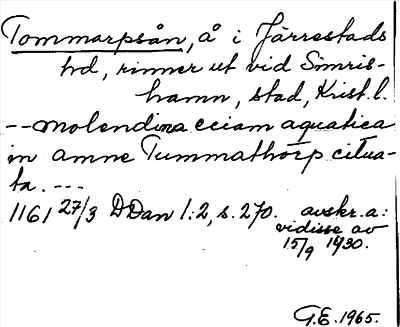 Tommarpsån, å i Järrestads
hd, rinner ut vid Simris-
hamn, stad, Krist. l.
--molendina eciam aquatica
in amne Tummathorp citua-
ta. ---
1161 27/3 DDan 1:2, s. 270. avskr. a:
vidisse av
15/9 1430.
G.E. 1965.